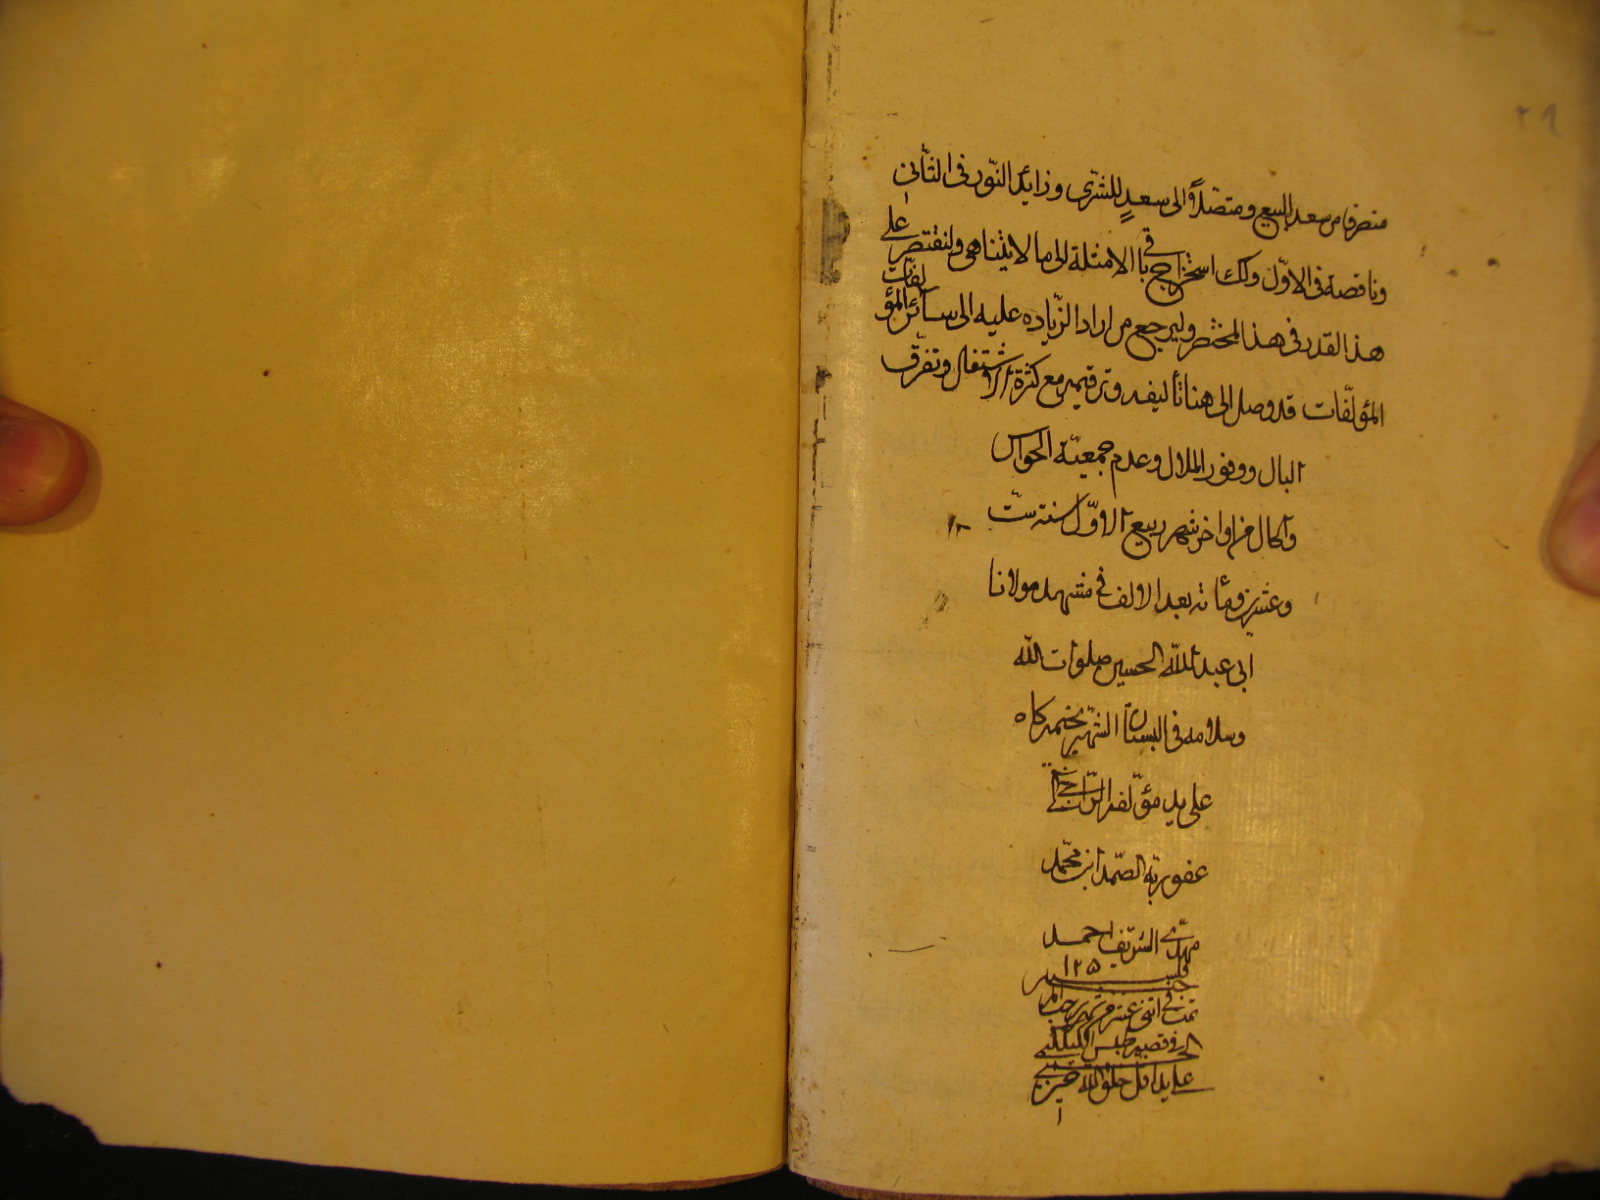 ٢٩
منصرفا من سعد للبيع ومتصلاً الى سعدٍ للشرى وزايد النّور فى الثّانى
وناقصه فى الاوّل ولك استخراج باقى الامثلة الى ما لا يتناهى ولنقتصر على
هذا القدر فى هذا المختصر وليرجع من اراد الزّياده عليه الى سائر المؤلفات
المؤلّفات قد وصل الى هنا تأليفه وترقيمه مع كثرة الاشتغال وتفرّق
البال ووفور الملال وعدم جمعيّة الحواس
وآكال من اواخر شهر ربيع الاوّل سنة ستّ
وعشرين ومائة بعد الالف فى مشهد مولانا
ابى عبد الله الحسين صلوات الله
وسلامه فى البستان الشّهير بخيمه كاه
على يد مؤلفه الرّاجى
عفو ربّه الصّمد ابن محمّد
مهدّى الشريف احمد
١٢٥
تمت فى اثنى عشر من شهر رجب المرجب
فى قصبه طبس
على يد اقل خلق الله